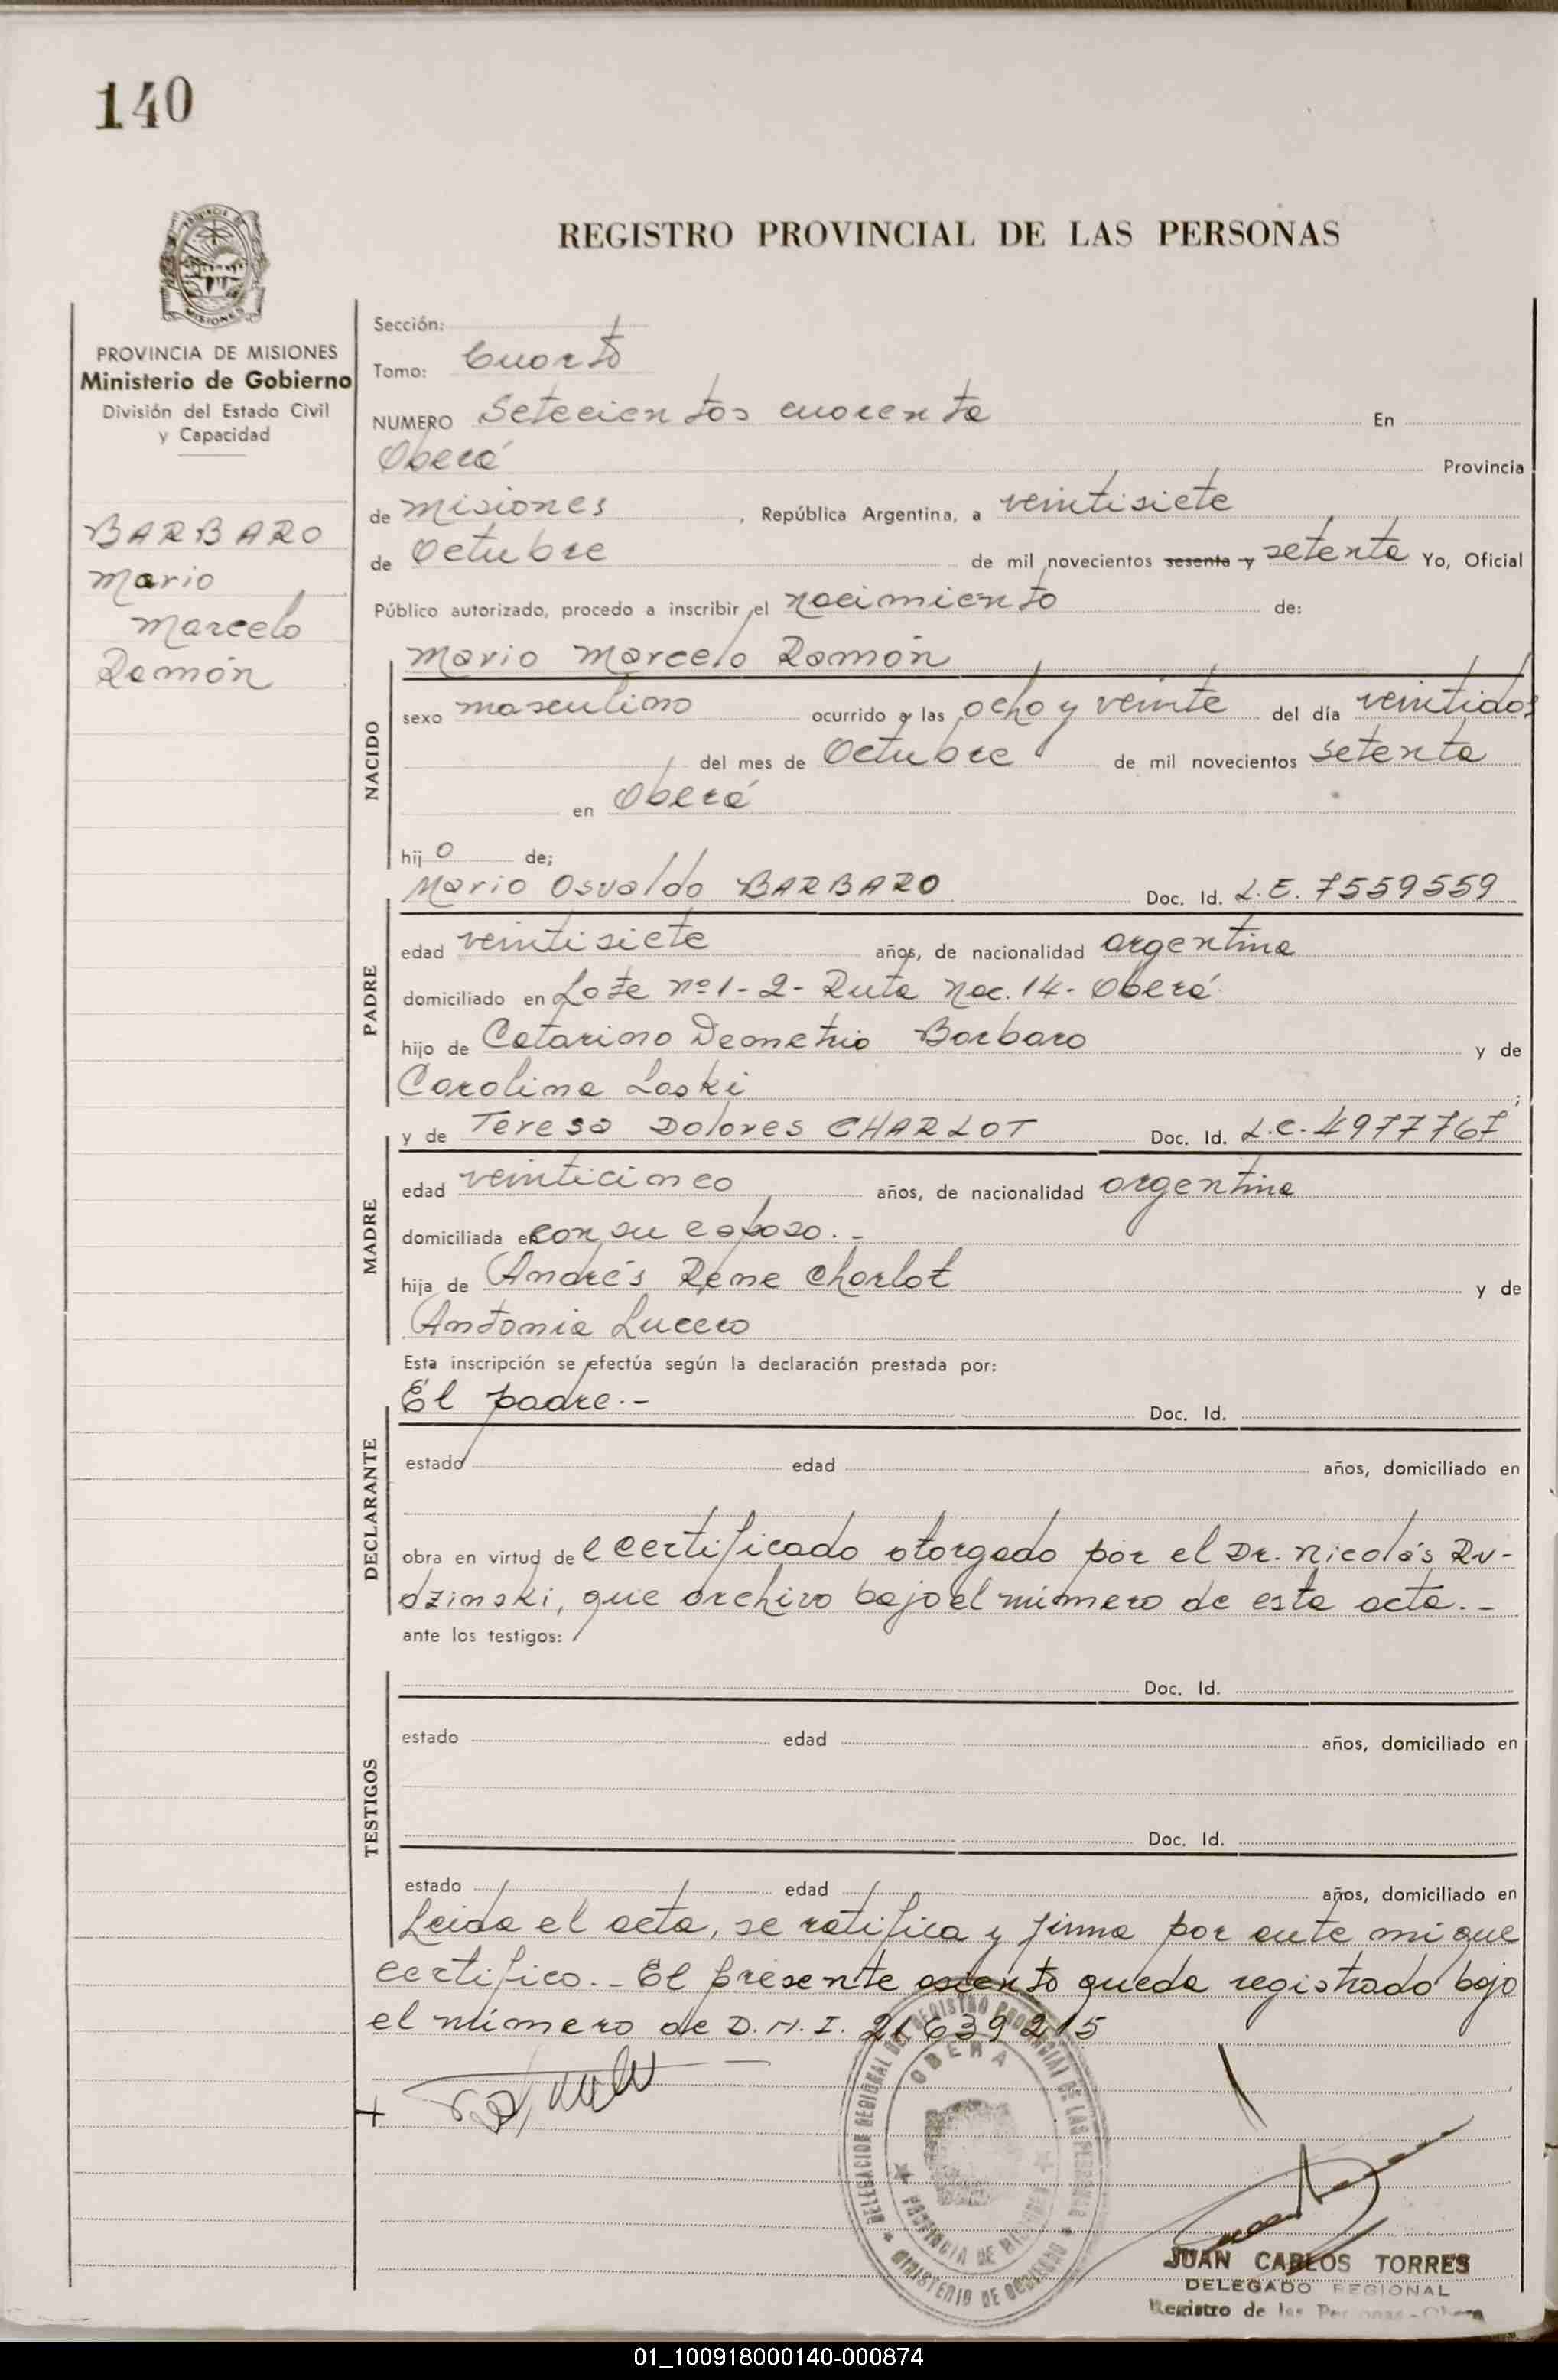 140
PROVINCIA DE MISIONES
Ministerio de Gobierno
División del Estado Civil
y Capacidad
BARBARO
Mario
Marcelo
Ramón
REGISTRO PROVINCIAL DE LAS PERSONAS
Sección:
Tomo: Cuarto
NUMERO Setecientos cuarenta En
Oberá Provincia
de Misiones, República Argentina, a veintisiete
de Octubre de mil novecientos sesenta y setenta Yo, Oficial
Público autorizado, procedo a inscribir el nacimiento de:
NACIDO
Mario Marcelo Ramón
sexo masculino ocurrido a las ocho y veinte del día veintidos
del mes de Octubre de mil novecientos setenta
en Oberá
hijo de;
PADRE
Mario Osvaldo BARBARO Doc. Id. L.E. 7559559
edad veintisiete años, de nacionalidad argentina
domiciliado en Lote nº 1-2- Ruta Nac. 14- Oberá
hijo de Catarino Demetrio Barbaro y de
Carolina Laski;
MADRE
y de Teresa Dolores CHARLOT Doc. Id. L.C. 4977767
edad veinticinco años, de nacionalidad argentina
domiciliada en con su esposo.-
hija de Andrés Rene Charlot y de
Antonia Lucero
Esta inscripción se efectúa según la declaración prestada por:
DECLARANTE
El padre.- Doc. Id.
estado edad años, domiciliado en
obra en virtud del certificado otorgado por el Dr. Nicolás Ru-
dzinski, que archivo bajo el número de esta acta.-
ante los testigos:
TESTIGOS
Doc. Id.
estado edad años, domiciliado en
Doc. Id.
estado edad años, domiciliado en
Leida el acta, se ratifica y firma por ante mi que
certifico.- El presente asiento queda registrado bajo
el número de D.N.I. 21639215
DELEGACION REGIONAL DEL REGISTRO PROVINCIAL DE LAS PERSONAS
OBERA
PROVINCIA DE MISIONES
MINISTERIO DE GOBIERNO
JUAN CARLOS TORRES
DELEGADO REGIONAL
Registro de las Personas - Obera
01_100918000140-000874